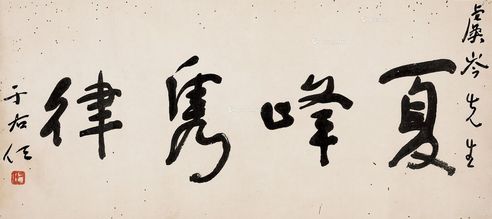 虞岑先生
夏峰秀律
于右任